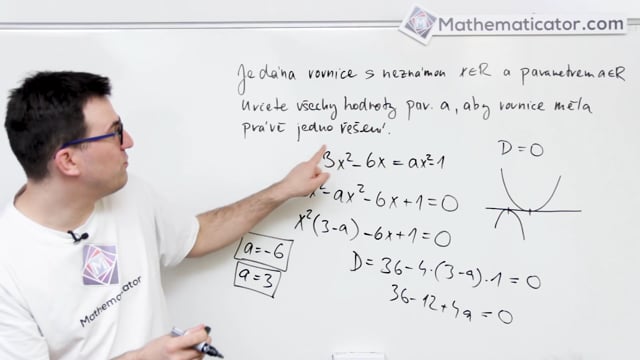 Mathematicator.com
Je dána rovnice s neznámou x∈R a parametrem a∈R
Určete všechy hodnoty par. a, aby rovnice měla
právě jedno řešení.
3x²-6x = ax²-1
x²-ax²-6x+1=0
x²(3-a)-6x+1=0
D=36-4·(3-a)·1=0
36-12+4a=0
D=0
a=-6
a=3
Mathematicator